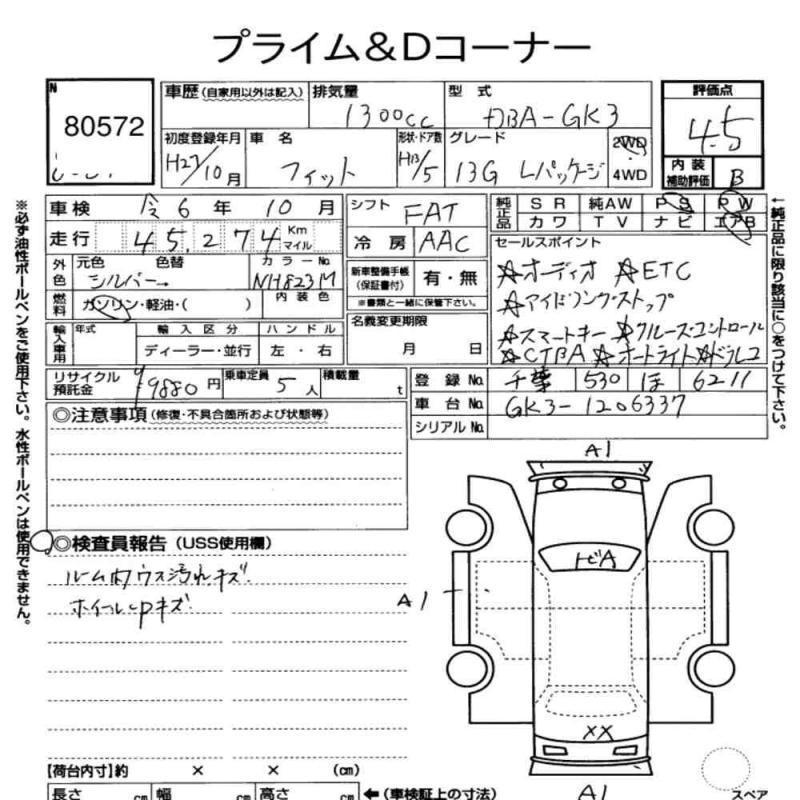 プライム&Dコーナー
N
80572
車歴 (自家用以外は記入)
排気量
1300cc
型式
DBA-GK3
評価点
4.5
初度登録年月
H27/10月
車名
フィット
形状・ドア数
HB/5
グレード
13G Lパッケージ
2WD
4WD
内装
補助評価
B
車検
令6年 10月
シフト
FAT
純正品
SR 純AW PS PW
カワ TV ナビ エアB
走行
45,274
Km
マイル
冷房
AAC
セールスポイント
☆オーディオ ☆ETC
☆アイドリングストップ
☆スマートキー ☆クルーズコントロール
☆CTBA ☆オートライト ☆ドラレコ
外色
元色
色替
カラーNo.
シルバー→
NH823M
新車整備手帳
(保証書付)
有・無
※書類と一緒に保管下さい。
燃料
ガソリン・軽油・( )
内装色
名義変更期限
月 日
輸入車用
年式
輸入区分
ハンドル
ディーラー・並行
左・右
リサイクル
預託金
9880円
乗車定員
5人
積載量
t
登録No.
千葉 530 ほ 6211
車台No.
GK3-1206337
シリアルNo.
◎注意事項(修復・不具合箇所および状態等)
◎検査員報告(USS使用欄)
ルーム内ウス汚れキズ
ホイールcpキズ
A1
トビA
A1
XX
A1
スペア
【荷台内寸】約 × × (cm)
長さ cm 幅 cm 高さ cm ←(車検証上の寸法)
※必ず油性ボールペンをご使用下さい。水性ボールペンは使用できません。
←純正品に限り該当に○をつけて下さい。